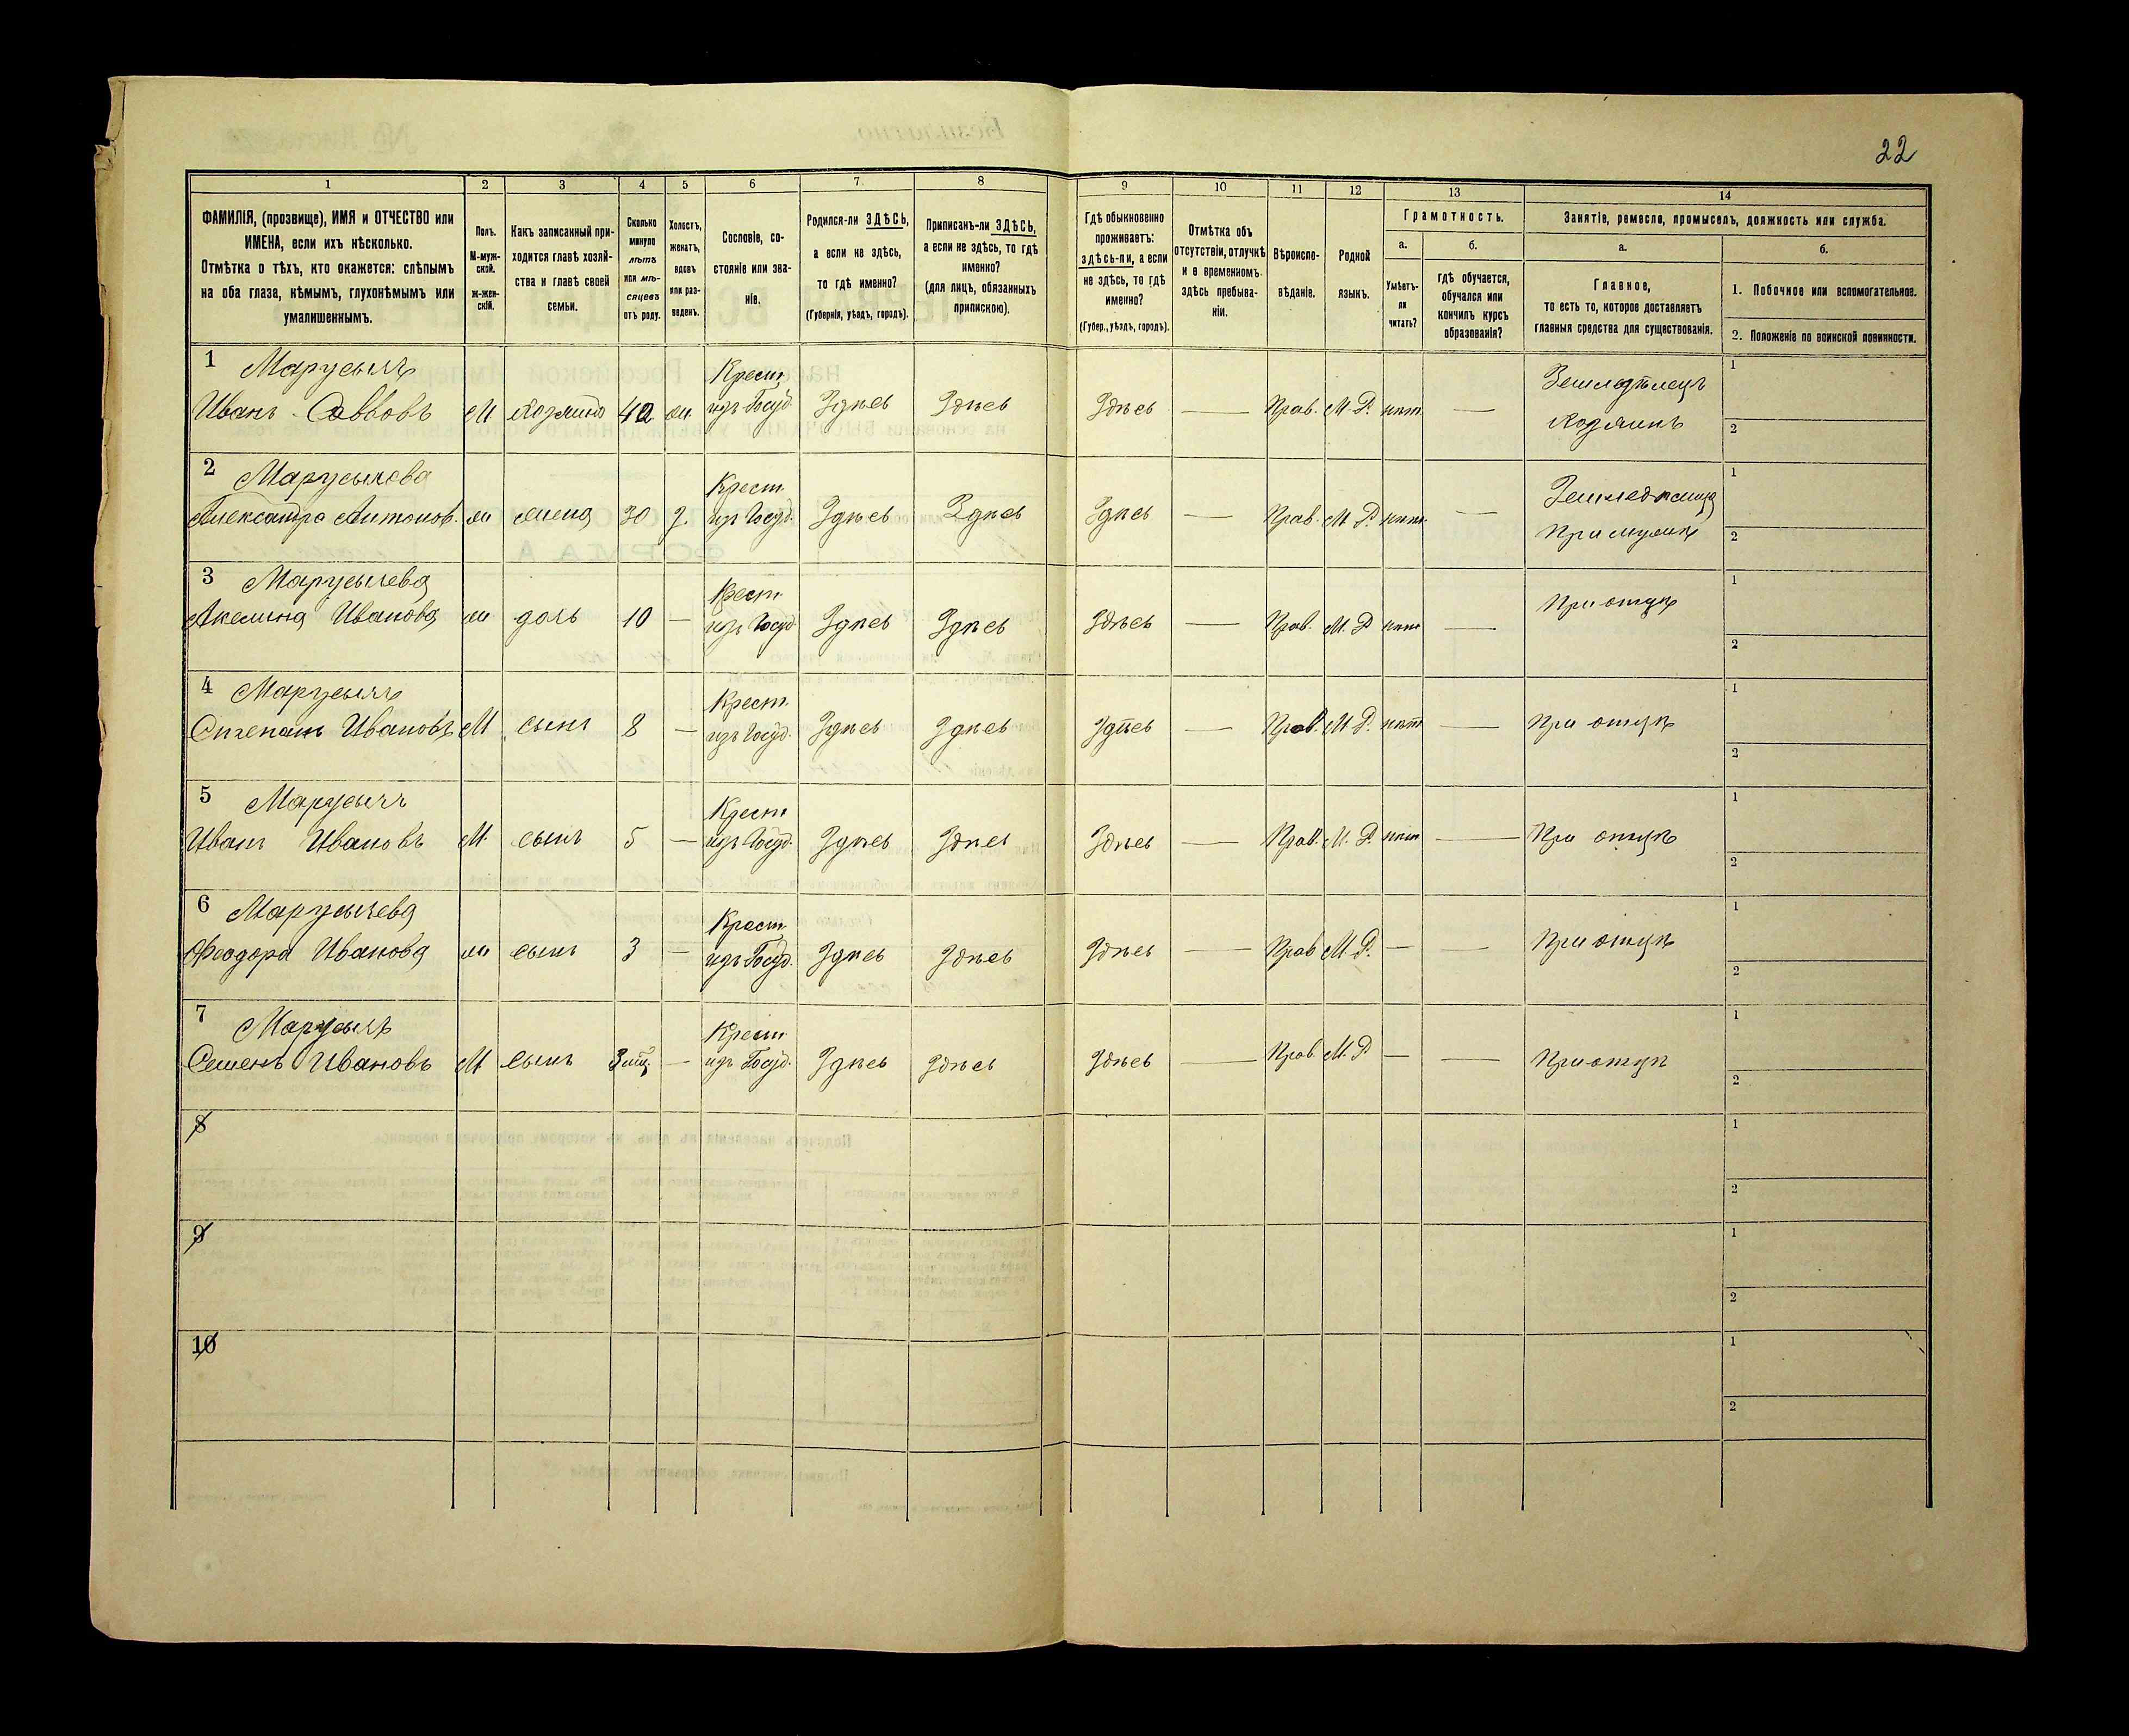 22
1 2 3 4 5 6 7 8 9 10 11 12 13 14
ФАМИЛІЯ, (прозвище), ИМЯ и ОТЧЕСТВО или
ИМЕНА, если ихъ нѣсколько.
Отмѣтка о тѣхъ, кто окажется: слѣпымъ
на оба глаза, нѣмымъ, глухонѣмымъ или
умалишеннымъ.
Полъ.
М-муж-
ской.
ж-жен-
скій.
Какъ записанный при-
ходится главѣ хозяй-
ства и главѣ своей
семьи.
Сколько
минуло
лѣтъ
или мѣ-
сяцевъ
отъ роду.
Холостъ,
женатъ,
вдовъ
или раз-
веденъ.
Сословіе, со-
стояніе или зва-
ніе.
Родился-ли ЗДѢСЬ,
а если не здѣсь,
то гдѣ именно?
(Губернія, уѣздъ, городъ).
Приписанъ-ли ЗДѢСЬ,
а если не здѣсь, то гдѣ
именно?
(для лицъ, обязанныхъ
припискою).
Гдѣ обыкновенно
проживаетъ:
здѣсь-ли, а если
не здѣсь, то гдѣ
именно?
(Губер., уѣздъ, городъ).
Отмѣтка объ
отсутствіи, отлучкѣ
и о временномъ
здѣсь пребыва-
ніи.
Вѣроиспо-
вѣданіе.
Родной
языкъ.
Грамотность.
а.
Умѣетъ-
ли
читать?
б.
гдѣ обучается,
обучался или
кончилъ курсъ
образованія?
Занятіе, ремесло, промыселъ, должность или служба.
а.
Главное,
то есть то, которое доставляетъ
главныя средства для существованія.
б.
1. Побочное или вспомогательное.
2. Положеніе по воинской повинности.
1 Марусычъ Крест. Земледѣлецъ 1
Иванъ Саввовъ М хозяинъ 42 ж. изъ Госуд. Здѣсь Здѣсь Здѣсь — Прав. М. Р. нѣт — Хозяинъ 2
2 Марусычева Крест. 1
Александра Антонов. ж жена 30 з. изъ Госуд. Здѣсь Здѣсь Здѣсь — Прав. М. Р. нѣт — При мужѣ 2
3 Марусычева Крест. При отцѣ 1
Акелина Иванова ж дочь 10 — изъ Госуд Здѣсь Здѣсь Здѣсь — Прав. М. Р нѣт — 2
4 Марусычъ Крест. 1
Степанъ Ивановъ М сынъ 8 — изъ Госуд. Здѣсь Здѣсь Здѣсь — Прав. М. Р. нѣт — При отцѣ 2
5 Марусычъ Крест 1
Иванъ Ивановъ М. сынъ 5 — изъ Госуд. Здѣсь Здѣсь Здѣсь — Прав. М. Р. нѣт — При отцѣ 2
6 Марусычева Крест 1
Феодора Иванова ж сынъ 3 — изъ Госуд. Здѣсь Здѣсь Здѣсь — Прав М. Р. — — При отцѣ 2
7 Марусычъ Крест 1
Семенъ Ивановъ М сынъ 3 мѣс. — изъ Госуд. Здѣсь Здѣсь Здѣсь — Прав. М. Р — — При отцѣ 2
8 1
2
9 1
2
10 1
2